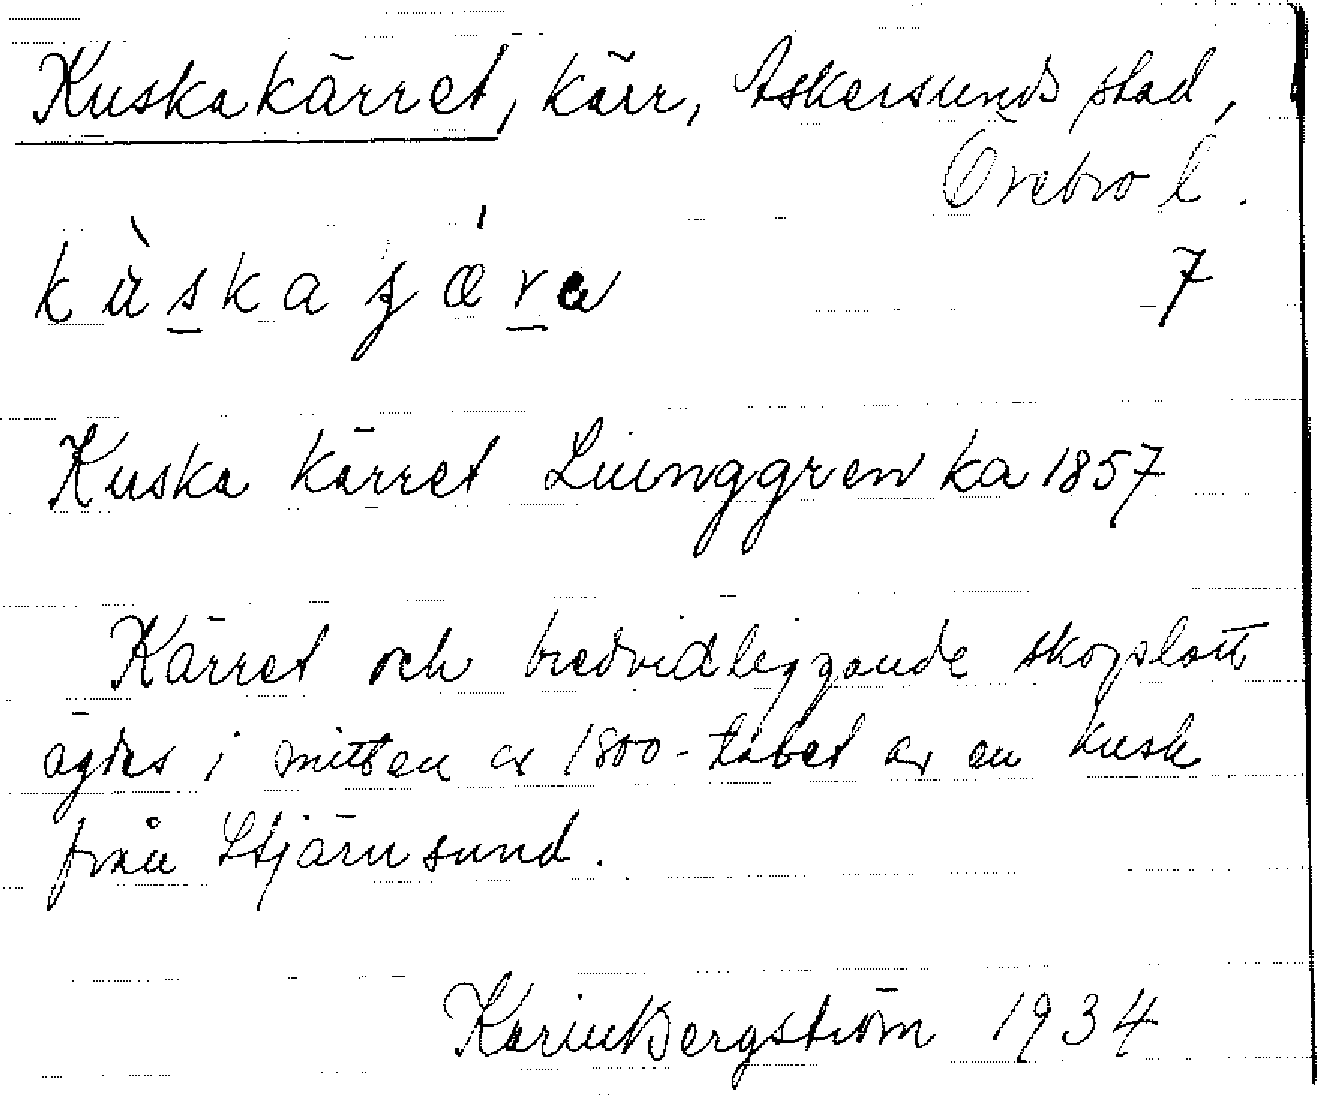 Kuskakärret, kärr, Askersunds stad,
Örebro l.
7
Kuska kärret Liunggren ka 1857
Kärret och bredvidliggande skogslott
ägdes i mitten av 1800-talet av en kusk
från Stjärnsund.
Karin Bergström 1934